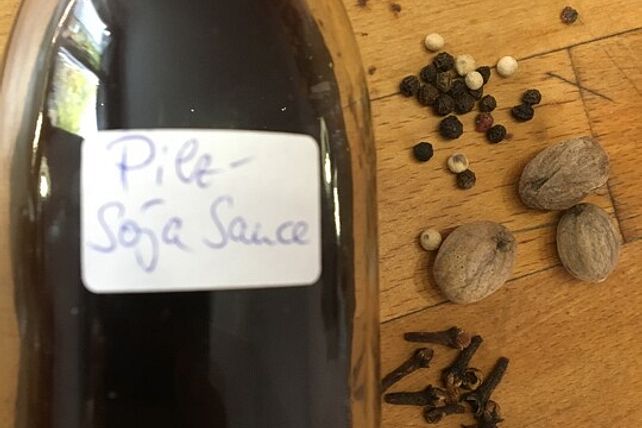 Pilz-
Soja Sauce